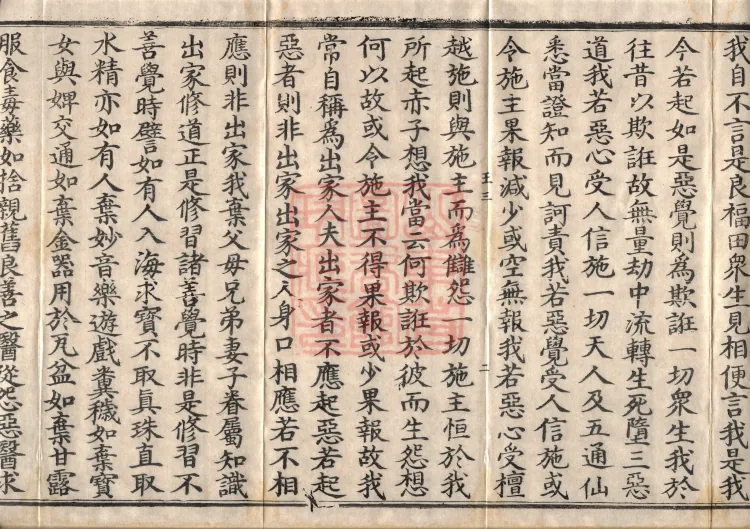 我自不言是良福田衆生見相便言我是我
今若起如是惡覺則爲欺誑一切衆生我於
往昔以欺誑故無量劫中流轉生死墮三惡
道我若惡心受人信施一切天人及五通仙
悉當證知而見訶責我若惡覺受人信施或
令施主果報減少或空無報我若惡心受檀
越施則與施主而爲讎怨一切施主恒於我
所起赤子想我當云何欺誑於彼而生怨想
何以故或令施主不得果報或少果報故我
常自稱爲出家人夫出家者不應起惡若起
惡者則非出家出家之人身口相應若不相
應則非出家我棄父母兄弟妻子眷屬知識
出家修道正是修習諸善覺時非是修習不
善覺時譬如有人入海求寶不取眞珠直取
水精亦如有人棄妙音樂遊戲糞穢如棄寶
女與婢交通如棄金器用於瓦盆如棄甘露
服食毒藥如捨親舊良善之醫從怨惡醫求
王三
二